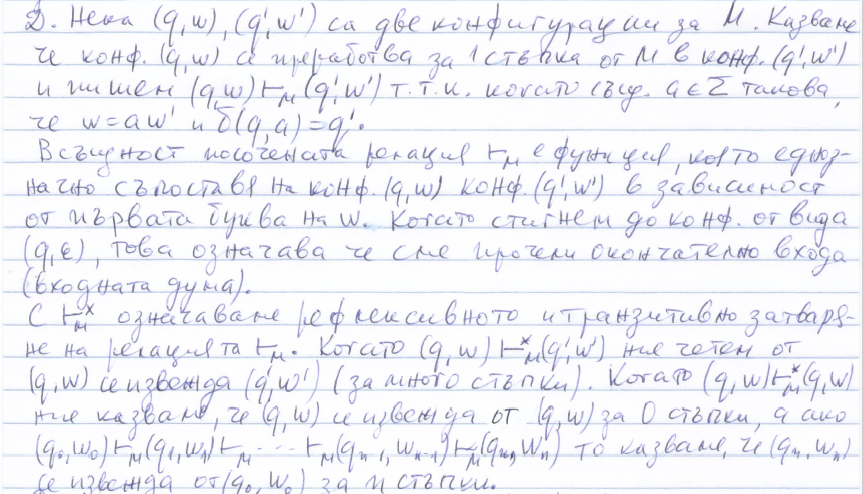 D. Нека (q,w), (q',w') са две конфигурации за M. Казваме
че конф. (q,w) се преработва за 1 стъпка от M в конф. (q',w')
и пишем (q,w)⊢_M(q',w') т.т.к. когато същ. a∈Σ такова,
че w=aw' и δ(q,a)=q'.
Всъщност посочената релация ⊢_M е функция, която едноз-
начно съпоставя на конф. (q,w) конф. (q',w') в зависимост
от първата буква на w. Когато стигнем до конф. от вида
(q,e), това означава че сме прочели окончателно входа
(входната дума).
С ⊢*_M означаваме рефлексивното и транзитивно затваря-
не на релацията ⊢_M. Когато (q,w)⊢*_M(q',w') ние четем от
(q,w) се извежда (q',w') (за много стъпки). Когато (q,w)⊢*_M(q,w)
ние казваме, че (q,w) се извежда от (q,w) за 0 стъпки, а ако
(q₀,w₀)⊢_M(q₁,w₁)⊢_M ... ⊢_M(qₙ₋₁,wₙ₋₁)⊢_M(qₙ,wₙ) то казваме, че (qₙ,wₙ)
се извежда от (q₀,w₀) за n стъпки.